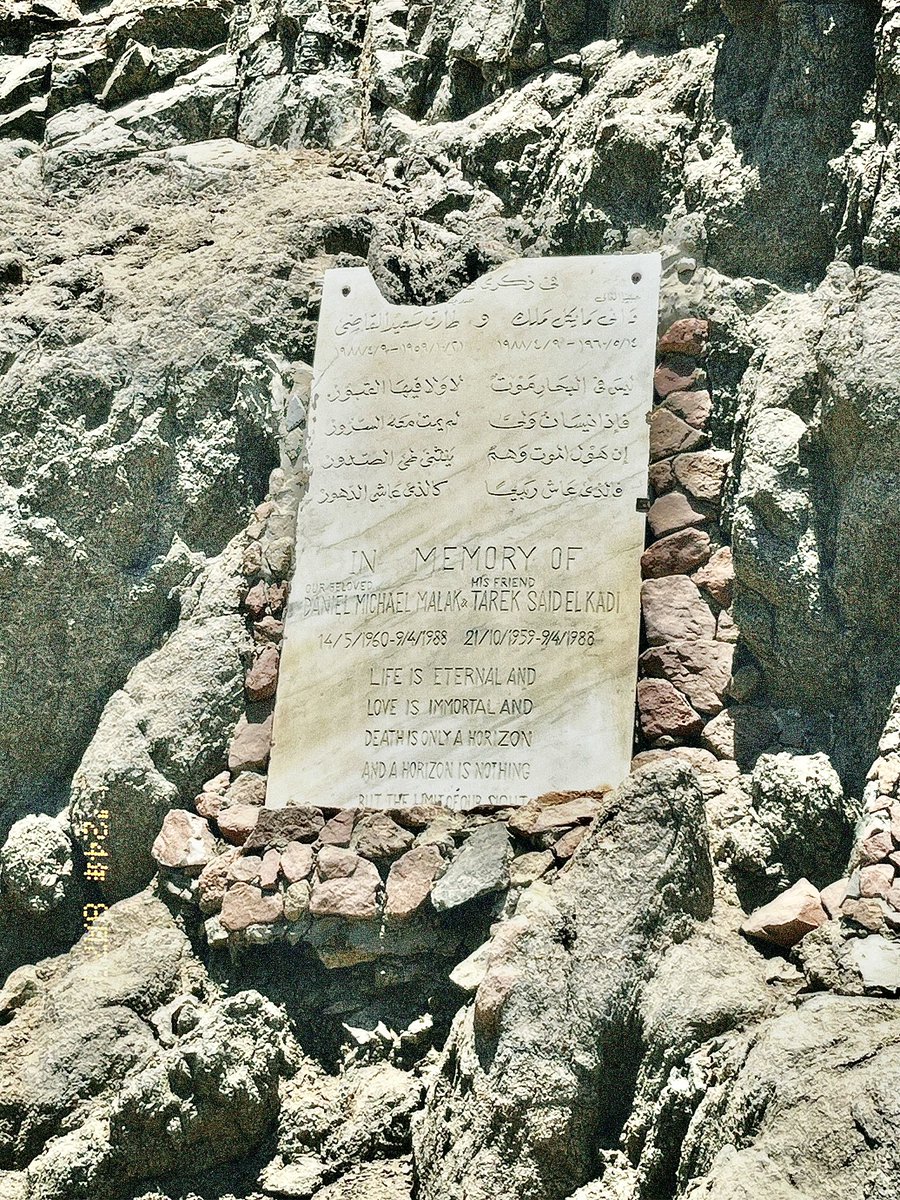 في ذكرى
حبيبنا الغالي
داني مايكل ملك و طارق سعيد القاضي
١٩٦٠/٥/١٤ – ١٩٨٨/٤/٩ ١٩٥٩/١٠/٢١ – ١٩٨٨/٤/٩
ليس في البحار موت لا ولا فيها القبور
فإذا نيسان ولّى لم يمت معه السرور
إن هول الموت وهم ينثني طي الصدور
فالذي عاش ربيعا كالذي عاش الدهور
IN MEMORY OF
OUR BELOVED HIS FRIEND
DANIEL MICHAEL MALAK & TAREK SAID EL KADI
14/5/1960-9/4/1988 21/10/1959-9/4/1988
LIFE IS ETERNAL AND
LOVE IS IMMORTAL AND
DEATH IS ONLY A HORIZON
AND A HORIZON IS NOTHING
BUT THE LIMIT OF OUR SIGHT